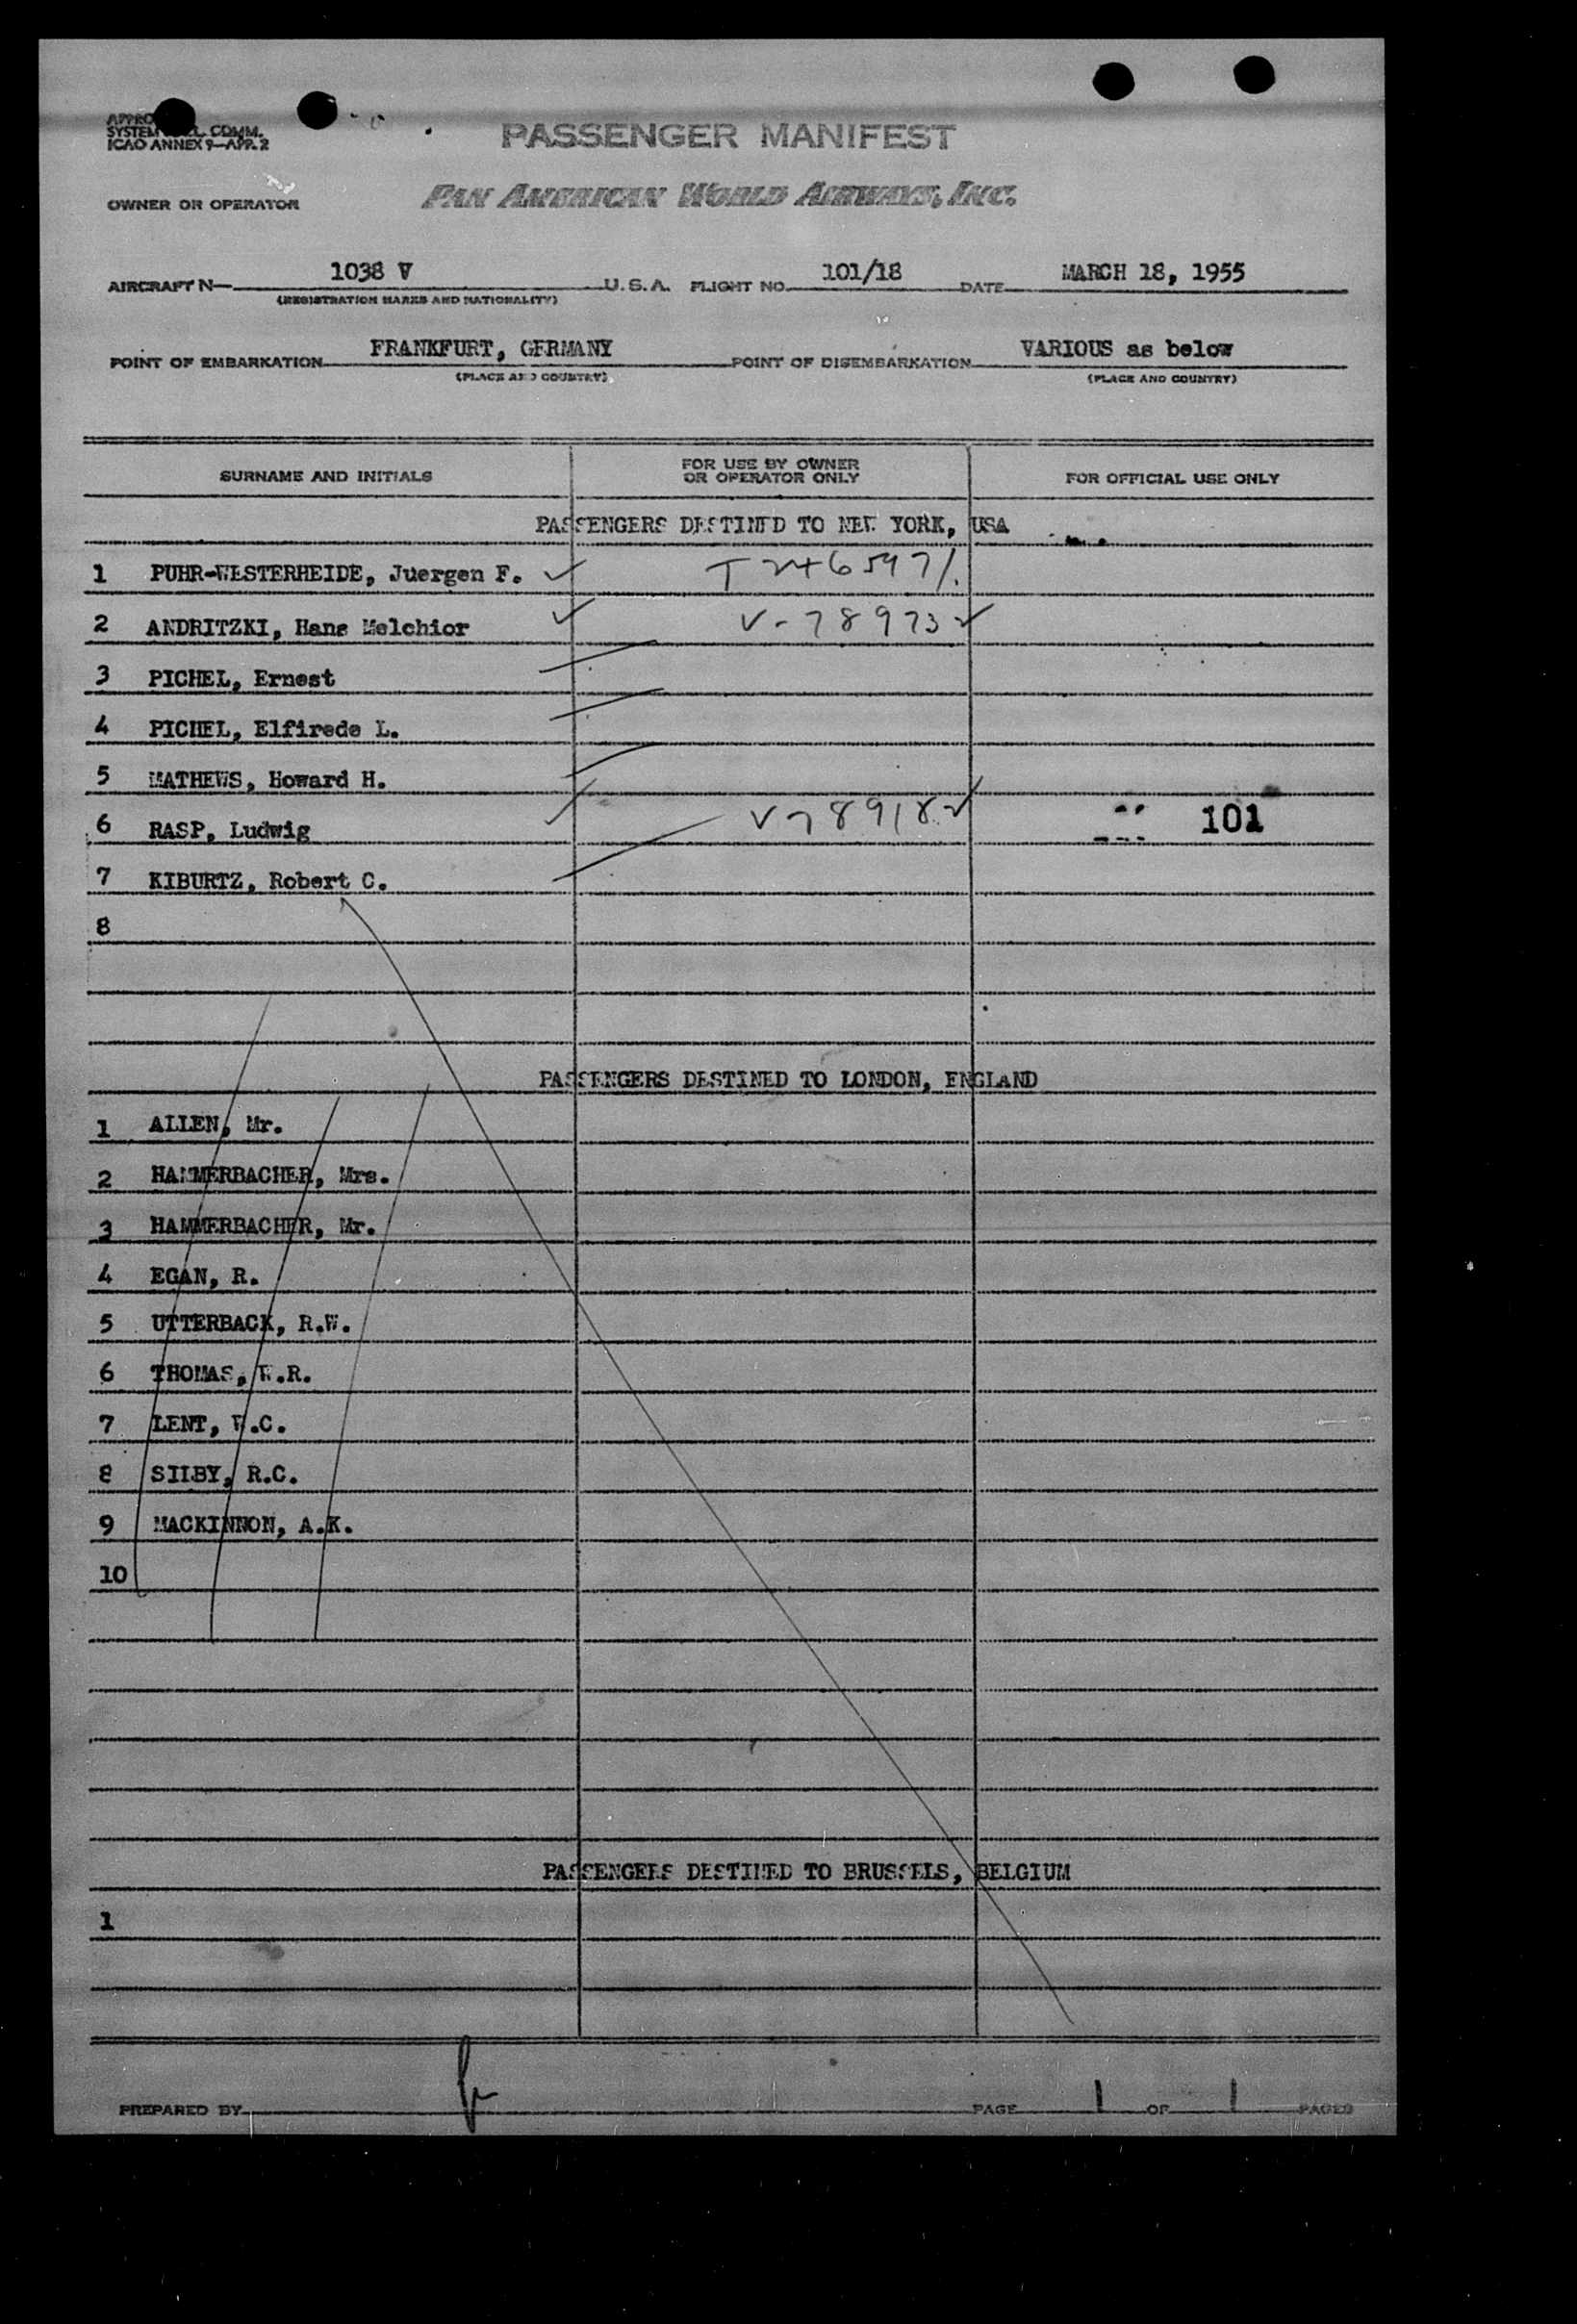 SYSTEM COMM.
ICAO ANNEX 9—APP. 2
PASSENGER MANIFEST
OWNER OR OPERATOR PAN AMERICAN WORLD AIRWAYS, INC.
AIRCRAFT N— 1038 V U.S.A. FLIGHT NO. 101/18 DATE MARCH 18, 1955
(REGISTRATION MARKS AND NATIONALITY)
POINT OF EMBARKATION FRANKFURT, GERMANY POINT OF DISEMBARKATION VARIOUS as below
(PLACE AND COUNTRY) (PLACE AND COUNTRY)
SURNAME AND INITIALS FOR USE BY OWNER OR OPERATOR ONLY FOR OFFICIAL USE ONLY
PASSENGERS DESTINED TO NEW YORK, USA
1 PUHR-WESTERHEIDE, Juergen F. T246597/.
2 ANDRITZKI, Hans Melchior V-78973
3 PICHEL, Ernest
4 PICHEL, Elfirede L.
5 MATHEWS, Howard H.
6 RASP, Ludwig V78918 101
7 KIBURTZ, Robert C.
8
PASSENGERS DESTINED TO LONDON, ENGLAND
1 ALLEN, Mr.
2 HAMMERBACHER, Mrs.
3 HAMMERBACHER, Mr.
4 EGAN, R.
5 UTTERBACK, R.W.
6 THOMAS, W.R.
7 LENT, W.C.
8 SILBY, R.C.
9 MACKINNON, A.K.
10
PASSENGERS DESTINED TO BRUSSELS, BELGIUM
1
PREPARED BY PAGE 1 OF 1 PAGES